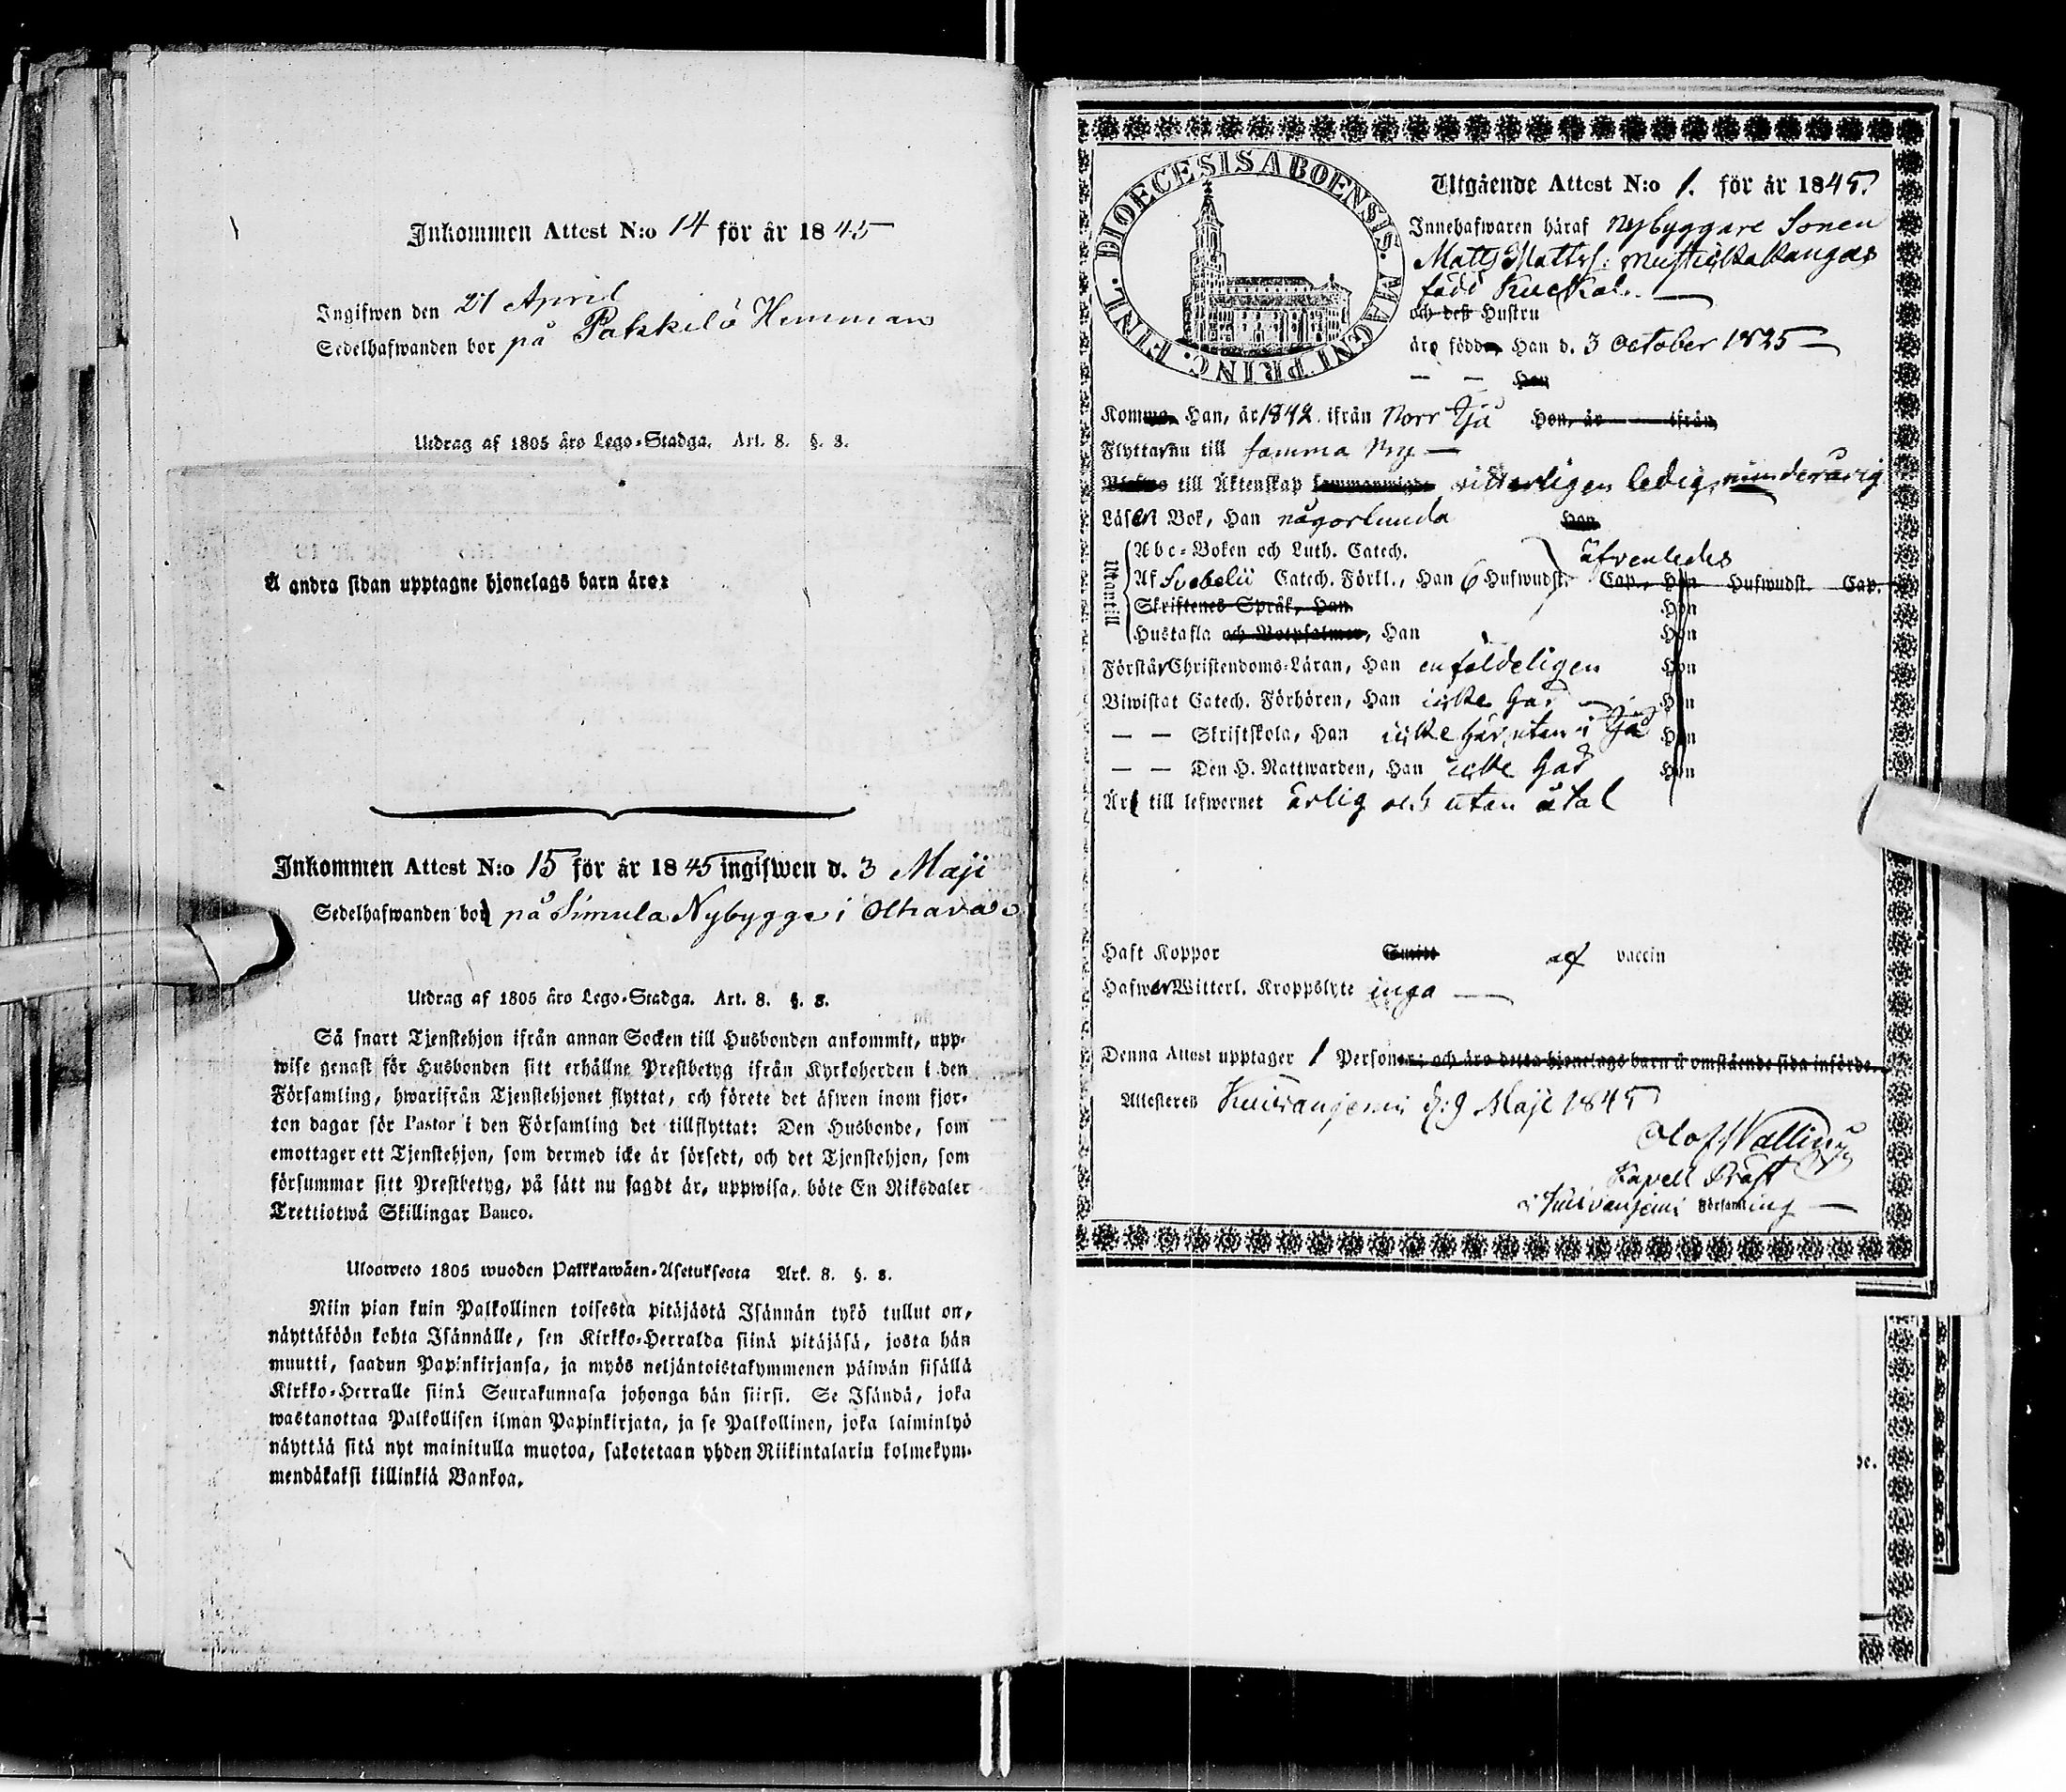 Inkommen Attest N:o 14 för år 1845
Ingifwen den 21 April
Sedelhafwanden bor på Pakkilö Hemman
Utdrag af 1805 års Lego-Stadga. Art. 8. §. 8.
Å andra sidan upptagne hjonelags barn äro:
Inkommen Attest N:o 15 för år 1845 ingifwen d. 3 Maji
Sedelhafwanden bor på Simula Nybygge i
Utdrag af 1805 års Lego-Stadga. Art. 8. §. 8.
Så snart Tjenstehjon ifrån annan Socken till Husbonden ankommit, upp-
wise genast för Husbonden sitt erhållne Prestbetyg ifrån Kyrkoherden i den
Församling, hwarifrån Tjenstehjonet flyttat, och förete det äfwen inom fjor-
ton dagar för Pastor i den Församling det tillflyttat: Den Husbonde, som
emottager ett Tjenstehjon, som dermed icke är försedt, och det Tjenstehjon, som
försummar sitt Prestbetyg, på sätt nu sagdt är, uppwisa, böte En Riksdaler
Trettiotwå Skillingar Banco.
Ulosweto 1805 wuoden Palkkawäen-Asetuksesta Art. 8. §. 8.
Niin pian kuin Palkollinen toisesta pitäjästä Isännän tykö tullut on,
näyttäköön kohta Isännälle, sen Kirkko-Herralda siinä pitäjäsä, josta hän
muutti, saadun Papinkirjansa, ja myös neljäntoistakymmenen päiwän sisällä
Kirkko-Herralle siinä Seurakunnasa johonga hän siirsi. Se Isändä, joka
wastanottaa Palkollisen ilman Papinkirjata, ja se Palkollinen, joka laiminlyö
näyttää sitä nyt mainitulla muotoa, sakotetaan yhden Riikintalarin kolmekym-
mendäkaksi killinkiä Bankoa.
DIOECESIS ABOENSIS. MAGNI PRINC. FINL.
Utgående Attest N:o 1. för år 1845.
Innehafwaren häraf Nybyggare Sonen
Matts Mattss:
född
och deß Hustru
äro födde, Han d. 3 October 1825
— — Hon
Komma, Han, år 1842 ifrån Norr Ijå Hon, år — ifrån
Flytta nu till samma Ny
till Äktenskap witterligen ledig, minderårig
Läsa i Bok, Han någorlunda Hon
Utantill
Abc-Boken och Luth. Catech. äfvenledes
Af Svebelii Catech. Förkl., Han 6 Hufwudst. Cap., Hon Hufwudst. Cap.
Skriftenes Språk, Han Hon
Hustafla och Botpsalmer, Han Hon
Förstår Christendoms-Läran, Han enfaldeligen Hon
Biwistat Catech. Förhören, Han icke här Hon
— — Skriftskola, Han icke här, utan i Ijå Hon
— — Den H. Nattwarden, Han icke här Hon
Är till lefwernet ärlig och utan åtal
Haft Koppor af vaccin
Hafwer Witterl. Kroppslyte inga
Denna Attest upptager 1 Personer; och äro detta hjonelags barn å omstående sida införde.
Attesteren Kuivaniemi d: 9 Maji 1845
Olof Wallin
Kapell Präst
i Kuivaniemi Församling